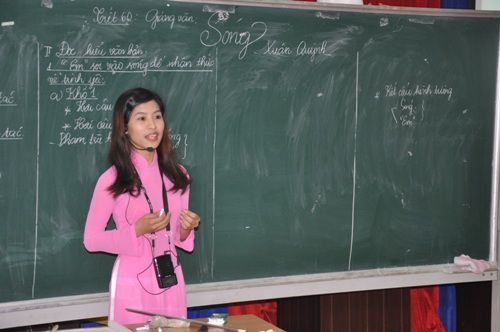 Tiết 60: Giảng văn
Sóng
Xuân Quỳnh
II Đọc - hiểu văn bản
1. "Em" soi vào sóng để nhận thức
về tình yêu:
a) Khổ 1
* Hai câu
* Hai câu
tác
tác
* Kết cấu hình tượng
{ Sóng }
"Em"